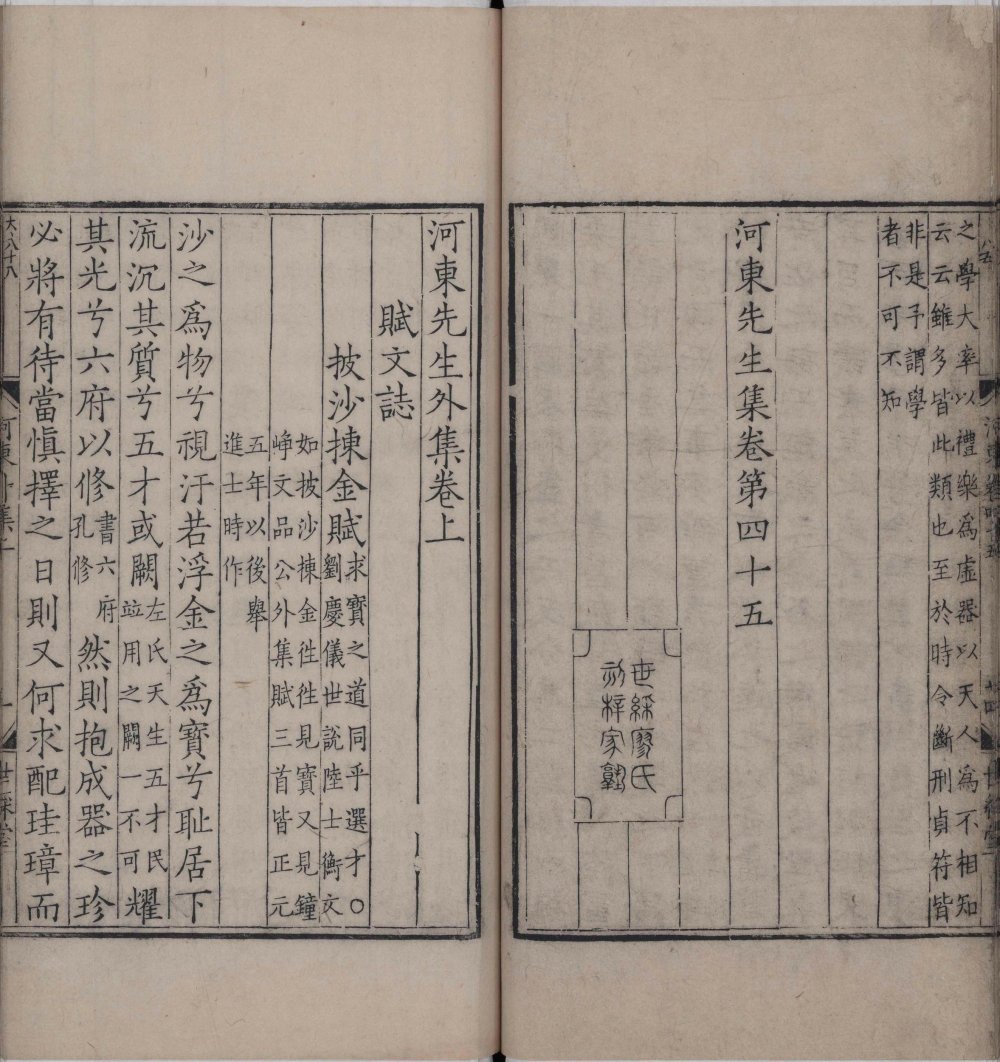 之學大率以禮樂爲虛器以天人爲不相知
云云雖多皆此類也至於時令斷刑貞符皆
非是予謂學
者不可不知
河東先生集卷第四十五
世綵廖氏
刻梓家塾
河東先生外集卷上
賦文誌
披沙揀金賦
求寶之道同乎選才○
劉慶儀世說陸士衡文
如披沙揀金徃徃見寶又見鐘
嶸文品公外集賦三首皆正元
五年以後舉
進士時作
沙之爲物兮視汙若浮金之爲寶兮恥居下
流沉其質兮五才或闕
左氏天生五才民
竝用之闕一不可
耀
其光兮六府以修
書六府
孔修
然則抱成器之珍
必將有待當愼擇之日則又何求配珪璋而
大八十八
世綵堂